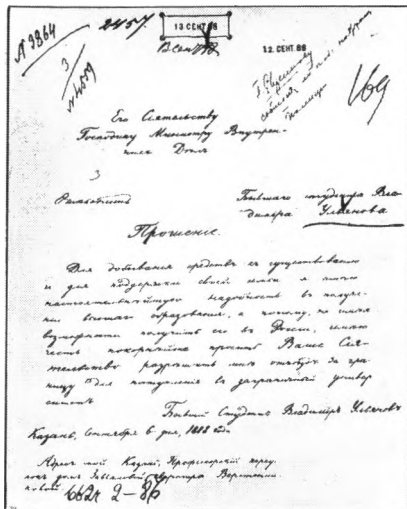 № 9864
2457
13 СЕНТ.88
12. СЕНТ.88
3
№ 4559
169
Его Сиятельству
Господину Министру Внутрен-
нихъ Делъ
3
Бывшаго студента Вла-
димира Ульянова
Прошение.
Для добывания средствъ къ существованию
и для поддержки своей семьи я имею
настоятельнейшую надобность въ получе-
нии высшаго образования, а потому, не имея
возможности получить его въ России, имею
честь покорнейше просить Ваше Сия-
тельство разрешить мне отъездъ за гра-
ницу для поступления въ заграничный универ
ситетъ
Бывший Студентъ Владимиръ Ульяновъ
Казань, Сентября 6 дня, 1888 года
Адресъ мой Казань, Профессорский переу-
локъ домъ